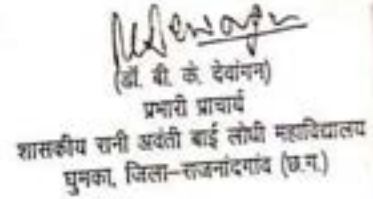 (डॉ. बी. के. देवांगन)
प्रभारी प्राचार्य
शासकीय रानी अवंती बाई लोधी महाविद्यालय
घुमका, जिला-राजनांदगांव (छ.ग.)